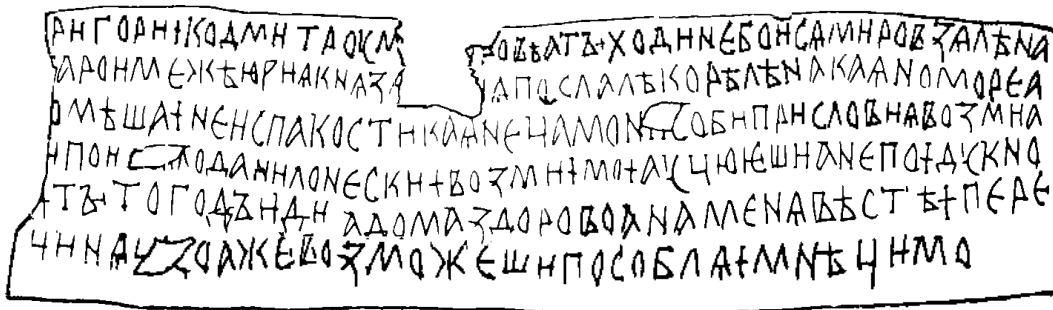 РИГОРИІКОДМИТРОУМ ОВѢАТЪІХОДИНЕБОИСѦМИРОВЗѦЛѢНА
АРОИМЕЖѢЮРИѦКНѦЗѦ ѦПОСЛАЛѢКОРѢЛѢНАКАѦНОМОРЕА
ОМѢШАІНЕИСПАКОСТИКАѦНЕЦАМОН СОБИПРИСЛОВИѦВОЗМИА
ИПОИ ЛОДАНИЛОНЕСКИІВОЗМИІМОІАУЦЮЕШИАНЕПОІДУСКНО
ІТЪІТОГОДЪИДИ АДОМАЗДОРОВОАНАМЕНѦВѢСТЪІПЕРЕ
ЧИНАЧ ОАЖЕВОЗМОЖЕШИПОСОБЛѦІМНѢЦИМО